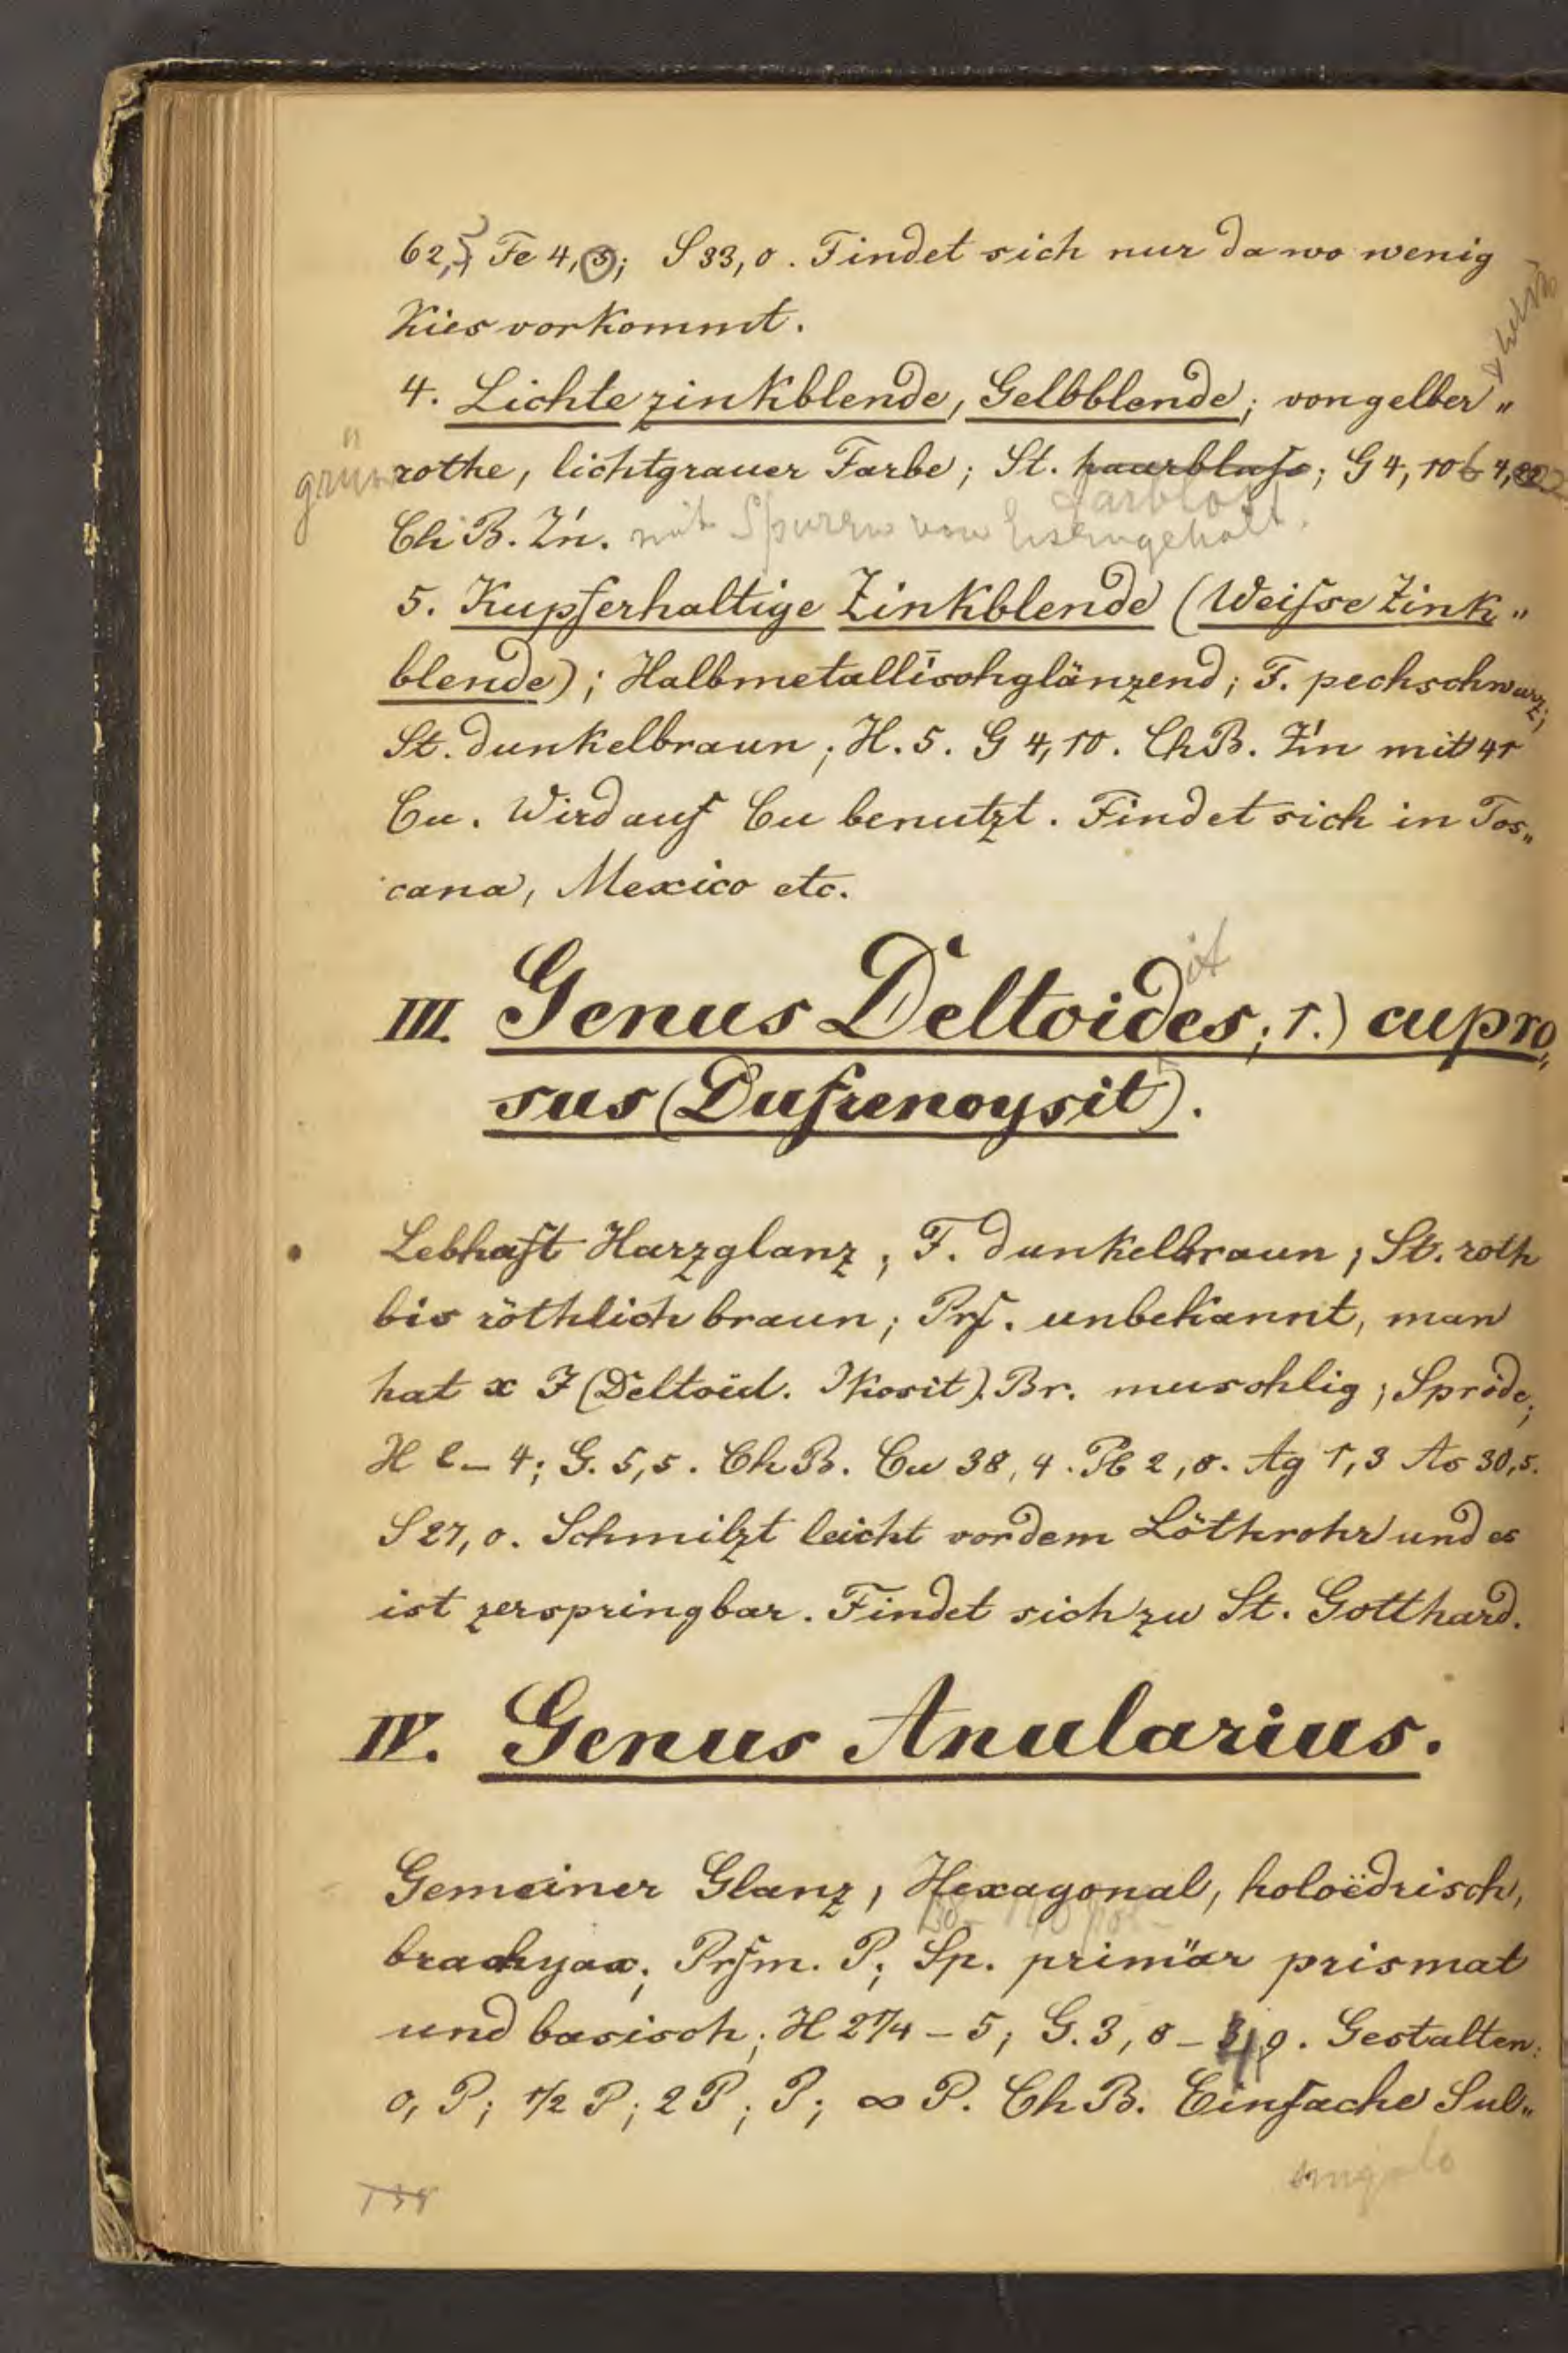 62,5 Fe 4,5; S 33,0. Findet sich nur da wo wenig
Kies vorkommt.
4. Lichte zinkblende, Gelbblende; von gelber„
grün rothe, lichtgrauer Farbe; St. haarblass; G 4,10 b 4,22
farblos
Ch B. Z'n. mit Spuren von Eisengehalt.
5. Kupferhaltige Zinkblende (Weisse Zink„
blende); Halbmetallischglänzend; F. pechschwarz;
St. dunkelbraun; H. 5. G 4,10. Ch B. Z'n mit 41
Cu. Wird auf Cu benutzt. Findet sich in Tos„
cana, Mexico etc.
it
III. Genus Deltoides; 1.) cupro„
sus (Dufrenoysit).
Lebhaft Harzglanz; F. dunkelbraun; St. roth
bis röthlich braun; Prf. unbekannt, man
hat x J (Deltoid. Ikosit). Br. muschlig; Spröde;
H l – 4; G. 5,5. Ch B. Cu 38,4. Pb 2,8. Ag 1,3 As 30,5.
S 27,0. Schmilzt leicht vor dem Löthrohr und es
ist zerspringbar. Findet sich zu St. Gotthard.
IV. Genus Anularius.
Gemeiner Glanz, Hexagonal, holoëdrisch,
brachyax; Prfm. P; Sp. primär prismat
und basisch; H 2¼ – 5; G. 3,8 – 4,9. Gestalten:
o, P; ½ P; 2 P; P; ∞ P. Ch B. Einfache Sul„
138